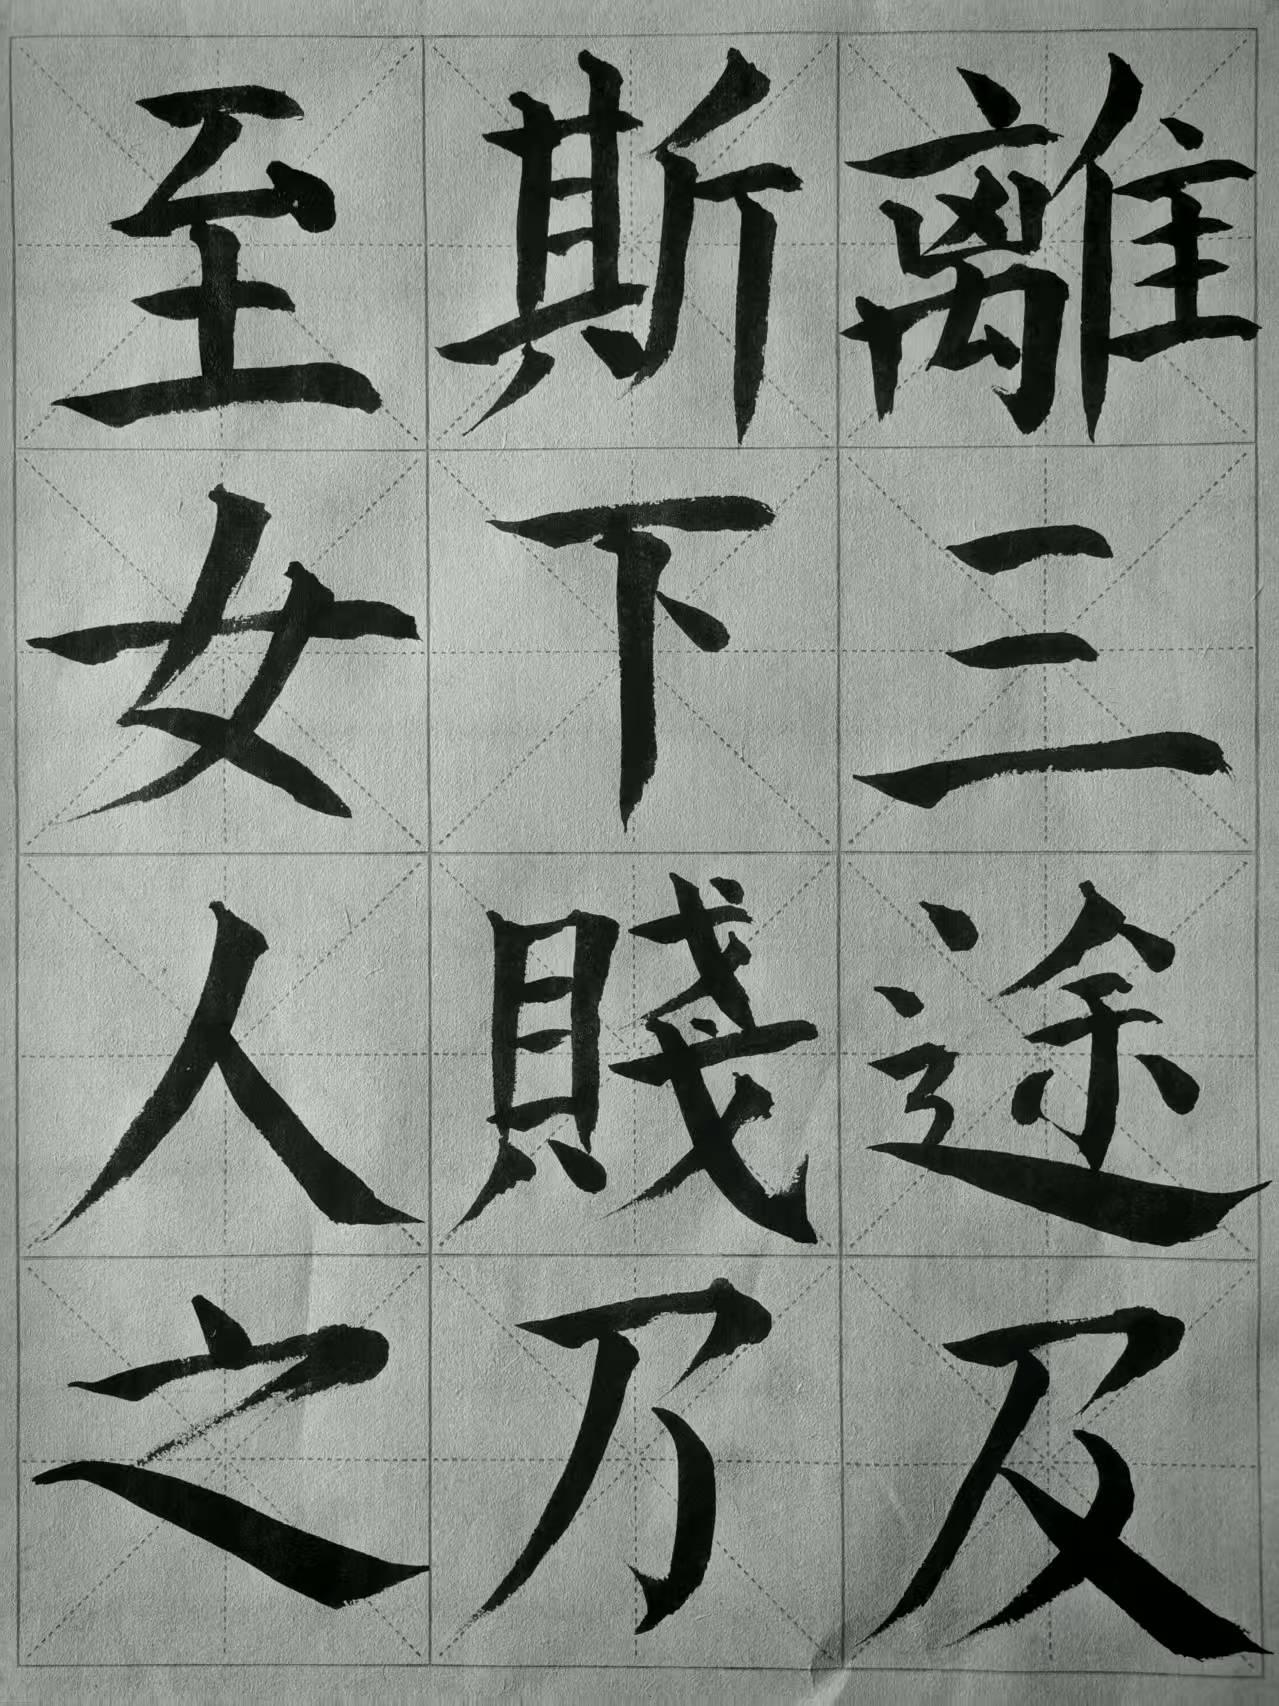 離三途及
斯下賤乃
至女人之